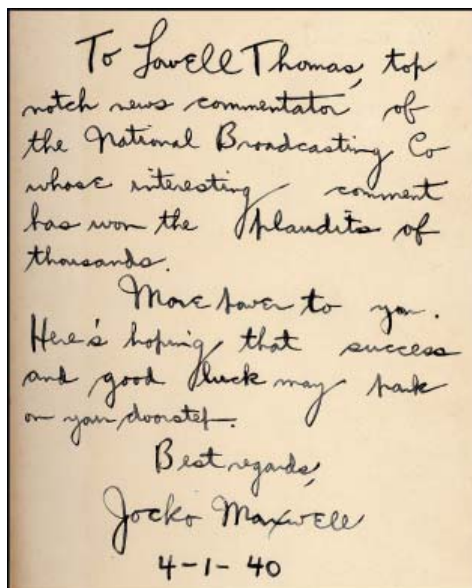 To Lowell Thomas, top
notch news commentator of
the National Broadcasting Co
whose interesting comment
has won the plaudits of
thousands.
More power to you.
Here's hoping that success
and good luck may park
on your doorstep.
Best regards,
Jocko Maxwell
4-1-40